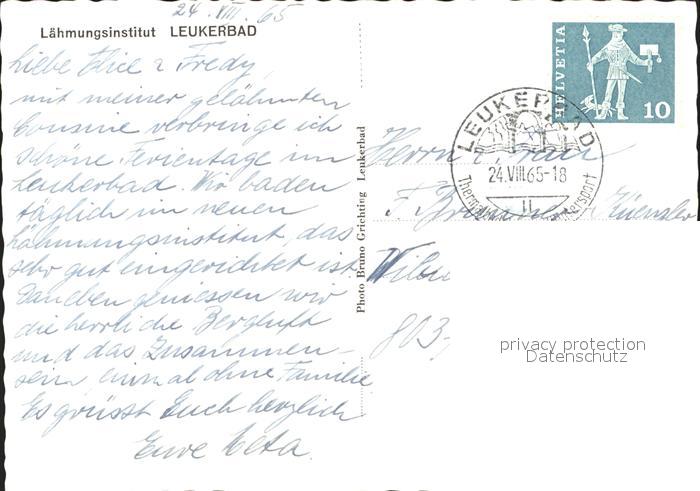 24.VIII.65
Lähmungsinstitut LEUKERBAD
Liebe Elice & Fredy,
mit meiner gelähmten
Cousine verbringe ich
schöne Ferientage im
Leukerbad. Wir baden
täglich im neuen
Lähmungsinstitut, das
sehr gut eingerichtet ist.
Daneben geniessen wir
die herrliche Bergluft
und das Zusammen-
sein einmal ohne Familie
Es grüsst Euch herzlich
Eure Meta.
Photo Bruno Grichting Leukerbad
HELVETIA
10
LEUKERBAD
24.VIII.65-18
Herrn & Frau
F.
803
privacy protection
Datenschutz